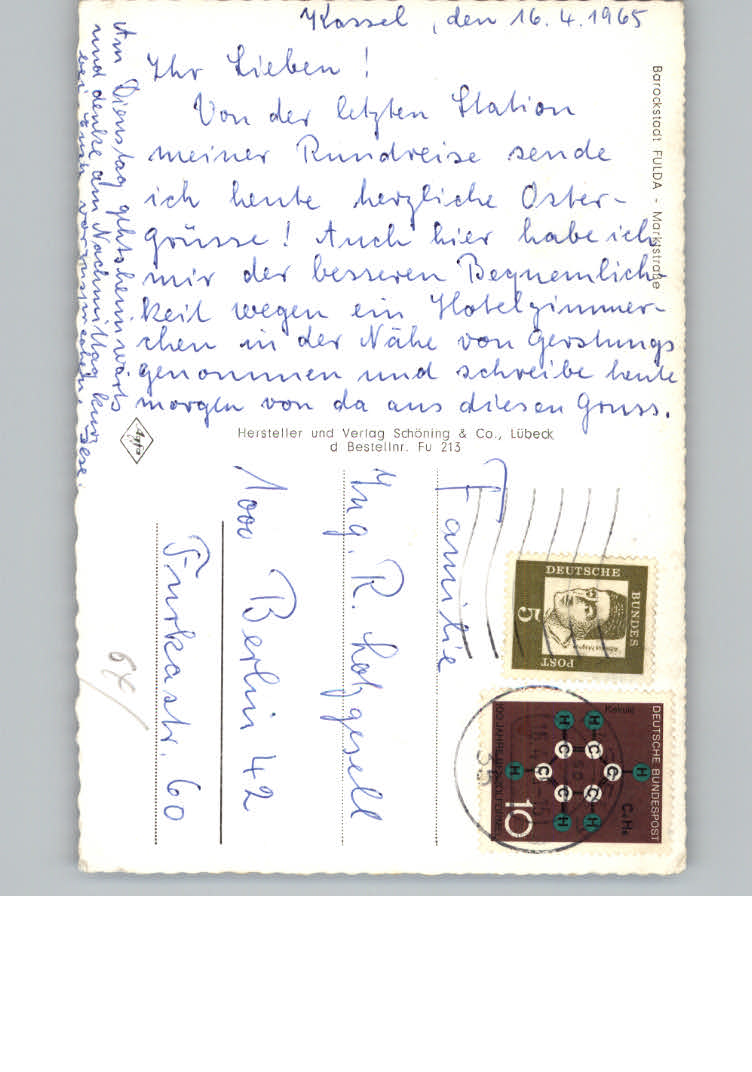 Kassel, den 16.4.1965
Ihr Lieben!
Von der letzten Station
meiner Rundreise sende
ich heute herzliche Oster-
grüsse! Auch hier habe ich
mir der besseren Bequemlich
keit wegen ein Hotelzimmer-
chen in der Nähe von Gerstungs
genommen und schreibe heute
morgen von da aus diesen Gruss.
Am Dienstag gehts heimwärts
und denke am Nachmittag kurz
bei Euch vorzusprechen.
Barockstadt FULDA - Marktstraße
Agfa
Hersteller und Verlag Schöning & Co., Lübeck
d Bestellnr. Fu 213
Familie
Ing. R. Lotzgesell
1000 Berlin 42
Furkastr. 60
6x/
DEUTSCHE
BUNDES
POST
5
DEUTSCHE BUNDESPOST
Kekulé
C6H6
H
H
C
C
H
C
C
H
C
C
H
H
10
35